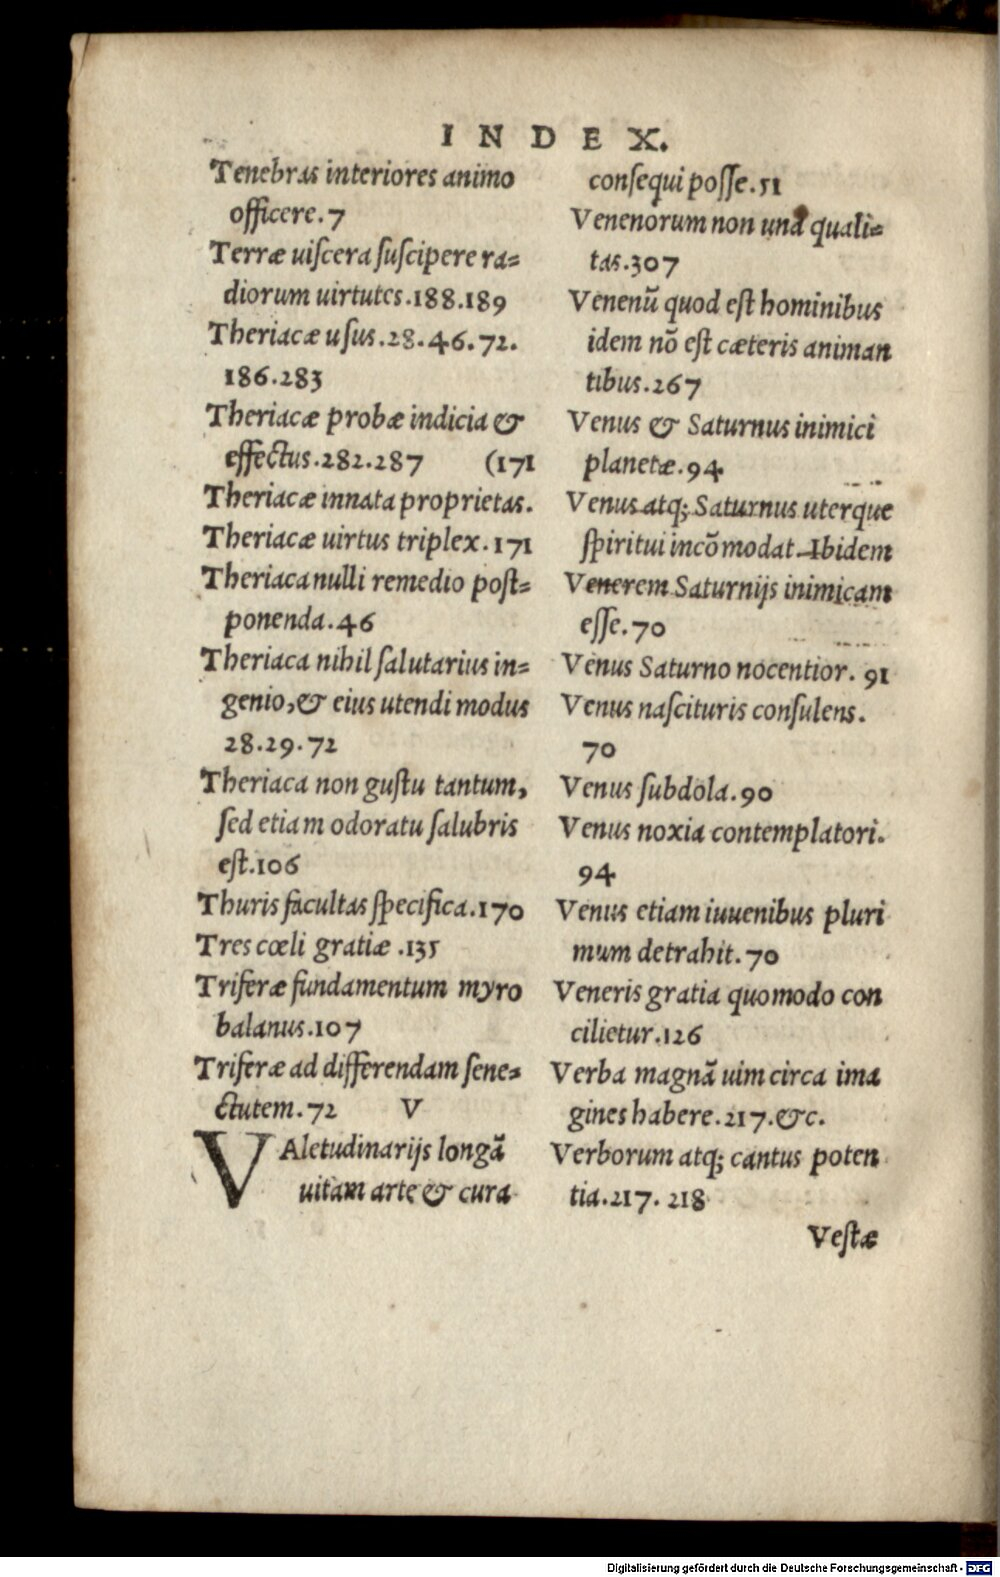 INDEX.
Tenebras interiores animo
officere. 7
Terræ uiſcera ſuſcipere ra=
diorum uirtutes. 188. 189
Theriacæ uſus. 28. 46. 72.
186. 283
Theriacæ probæ indicia &
effectus. 282. 287 (171
Theriacæ innata proprietas.
Theriacæ uirtus triplex. 171
Theriaca nulli remedio poſt=
ponenda. 46
Theriaca nihil ſalutarius in=
genio, & eius utendi modus
28. 29. 72
Theriaca non guſtu tantum,
ſed etiam odoratu ſalubris
eſt. 106
Thuris facultas ſpecifica. 170
Tres cœli gratiæ . 135
Triferæ fundamentum myro
balanus. 107
Triferæ ad differendam ſene=
ctutem. 72 V
VAletudinarijs longã
uitam arte & cura
conſequi poſſe. 51
Venenorum non una quali=
tas. 307
Venenũ quod eſt hominibus
idem nõ eſt cæteris animan
tibus. 267
Venus & Saturnus inimici
planetæ. 94
Venus atq; Saturnus uterque
ſpiritui incõmodat. Ibidem
Venerem Saturnijs inimicam
eſſe. 70
Venus Saturno nocentior. 91
Venus naſcituris conſulens.
70
Venus ſubdola. 90
Venus noxia contemplatori.
94
Venus etiam iuuenibus pluri
mum detrahit. 70
Veneris gratia quomodo con
cilietur. 126
Verba magnã uim circa ima
gines habere. 217. &c.
Verborum atq; cantus poten
tia. 217. 218
Veſtæ
Digitalisierung gefördert durch die Deutsche Forschungsgemeinschaft - DFG